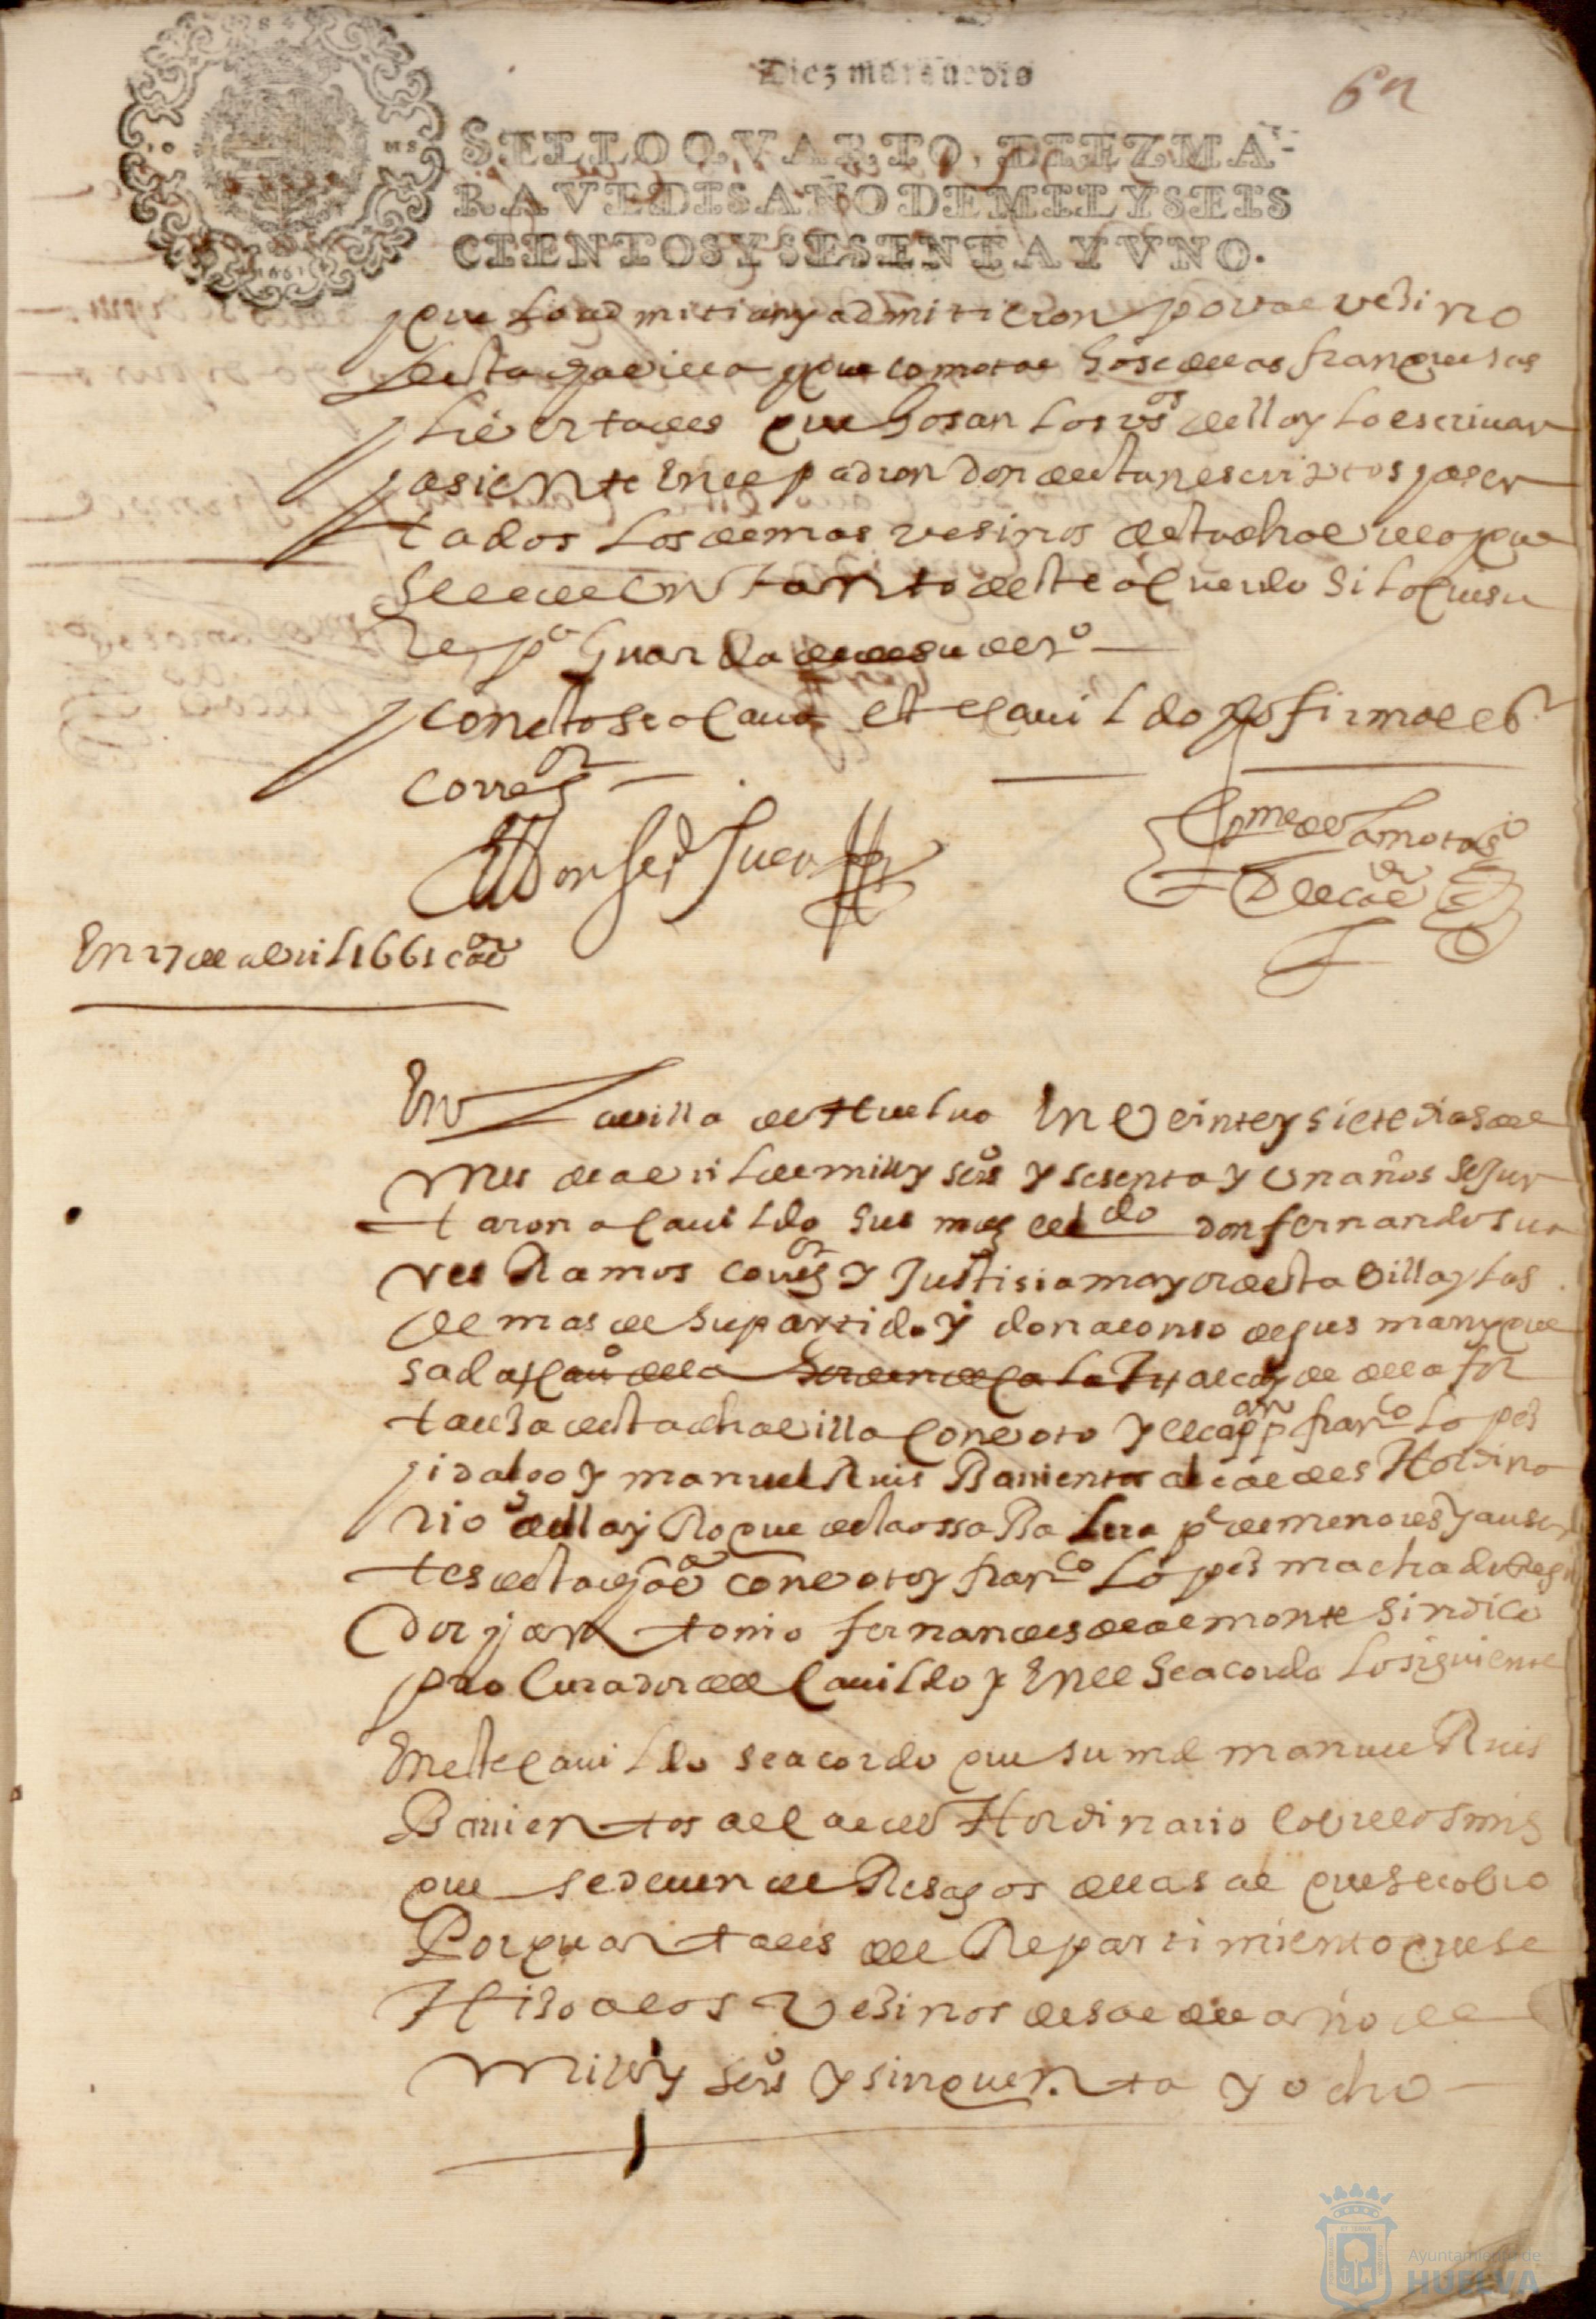 Diez marauedis
62
SELLO QVARTO, DIEZ MA-
RAVEDIS AÑO DE MIL Y SEIS
CIENTOS Y SESENTA Y VNO.
que lo admitian y admitieron por tal vesino
desta dha villa y que como tal gose de las franquesas
y livertades que gosan los vos della y lo escrivan
y asiente en el padron donde estan escriptos y asen
tados los demas vesinos desta dha villa y que
se le de un tanto deste acuerdo si lo quisie
re pa guarda de su dero
y con esto se acavo este cavildo y lo firmo el sr
corregor
Ldo Don Ferdo Suares
Bme de la mota
esco de cavdo
En 27 de abril 1661 cavdo
En la villa de Huelva en veinte y siete dias del
mes de abril de mill y seisos y sesenta y un años se jun
taron a cavildo sus mrds el ldo don fernando sua
res Ramos corregor y Justisia mayor desta villa y las
demas de su partido y don alonso de gusman y que
sada cavo de la horden de calatra alcayde de la for
talesa desta dha villa con voto y el cappan franco lopes
y idalgo y manuel Ruis Barrientos alcaldes Hordina
rios della y Roque de la ossa Ba pe de menores y ausen
tes desta dha va con voto y franco lopes machado Regi
dor y antonio fernandes de almonte sindico
procurador del cavildo y en el se acordo lo siguiente
En este cavildo se acordo que su md manuel Ruis
Barrientos alcalde Hordinario cobre los mrs
que se deven de Resagos de la sal que se cobro
Por quartales del Repartimiento que se
Hiso a los vesinos desde el año de
mill y seisos y sinquenta y ocho
Ayuntamiento de
HUELVA